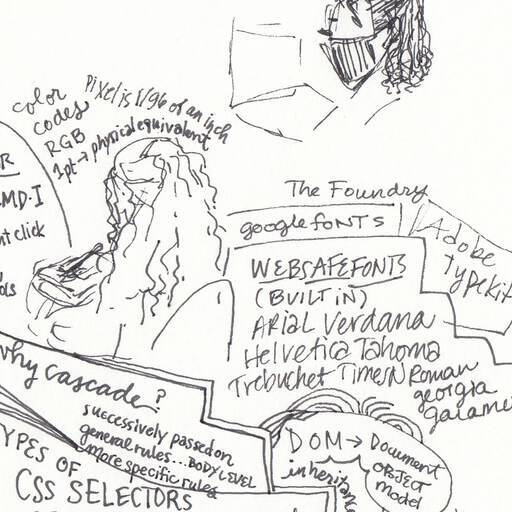 color
codes
RGB
Pixel is 1/96 of an inch
1pt → physical equivalent
R
CMD·I
click
ols
The Foundry
google fonts
Adobe
Typekit
WEBSAFEFONTS
(BUILT IN)
ARIAL Verdana
Helvetica Tahoma
Trebuchet TimesNRoman
georgia
garamo
why cascade?
successively passed on
general rules... BODY LEVEL
more specific rules
YPES OF
CSS SELECTORS
DOM → Document
OBJECT
model
inheritance